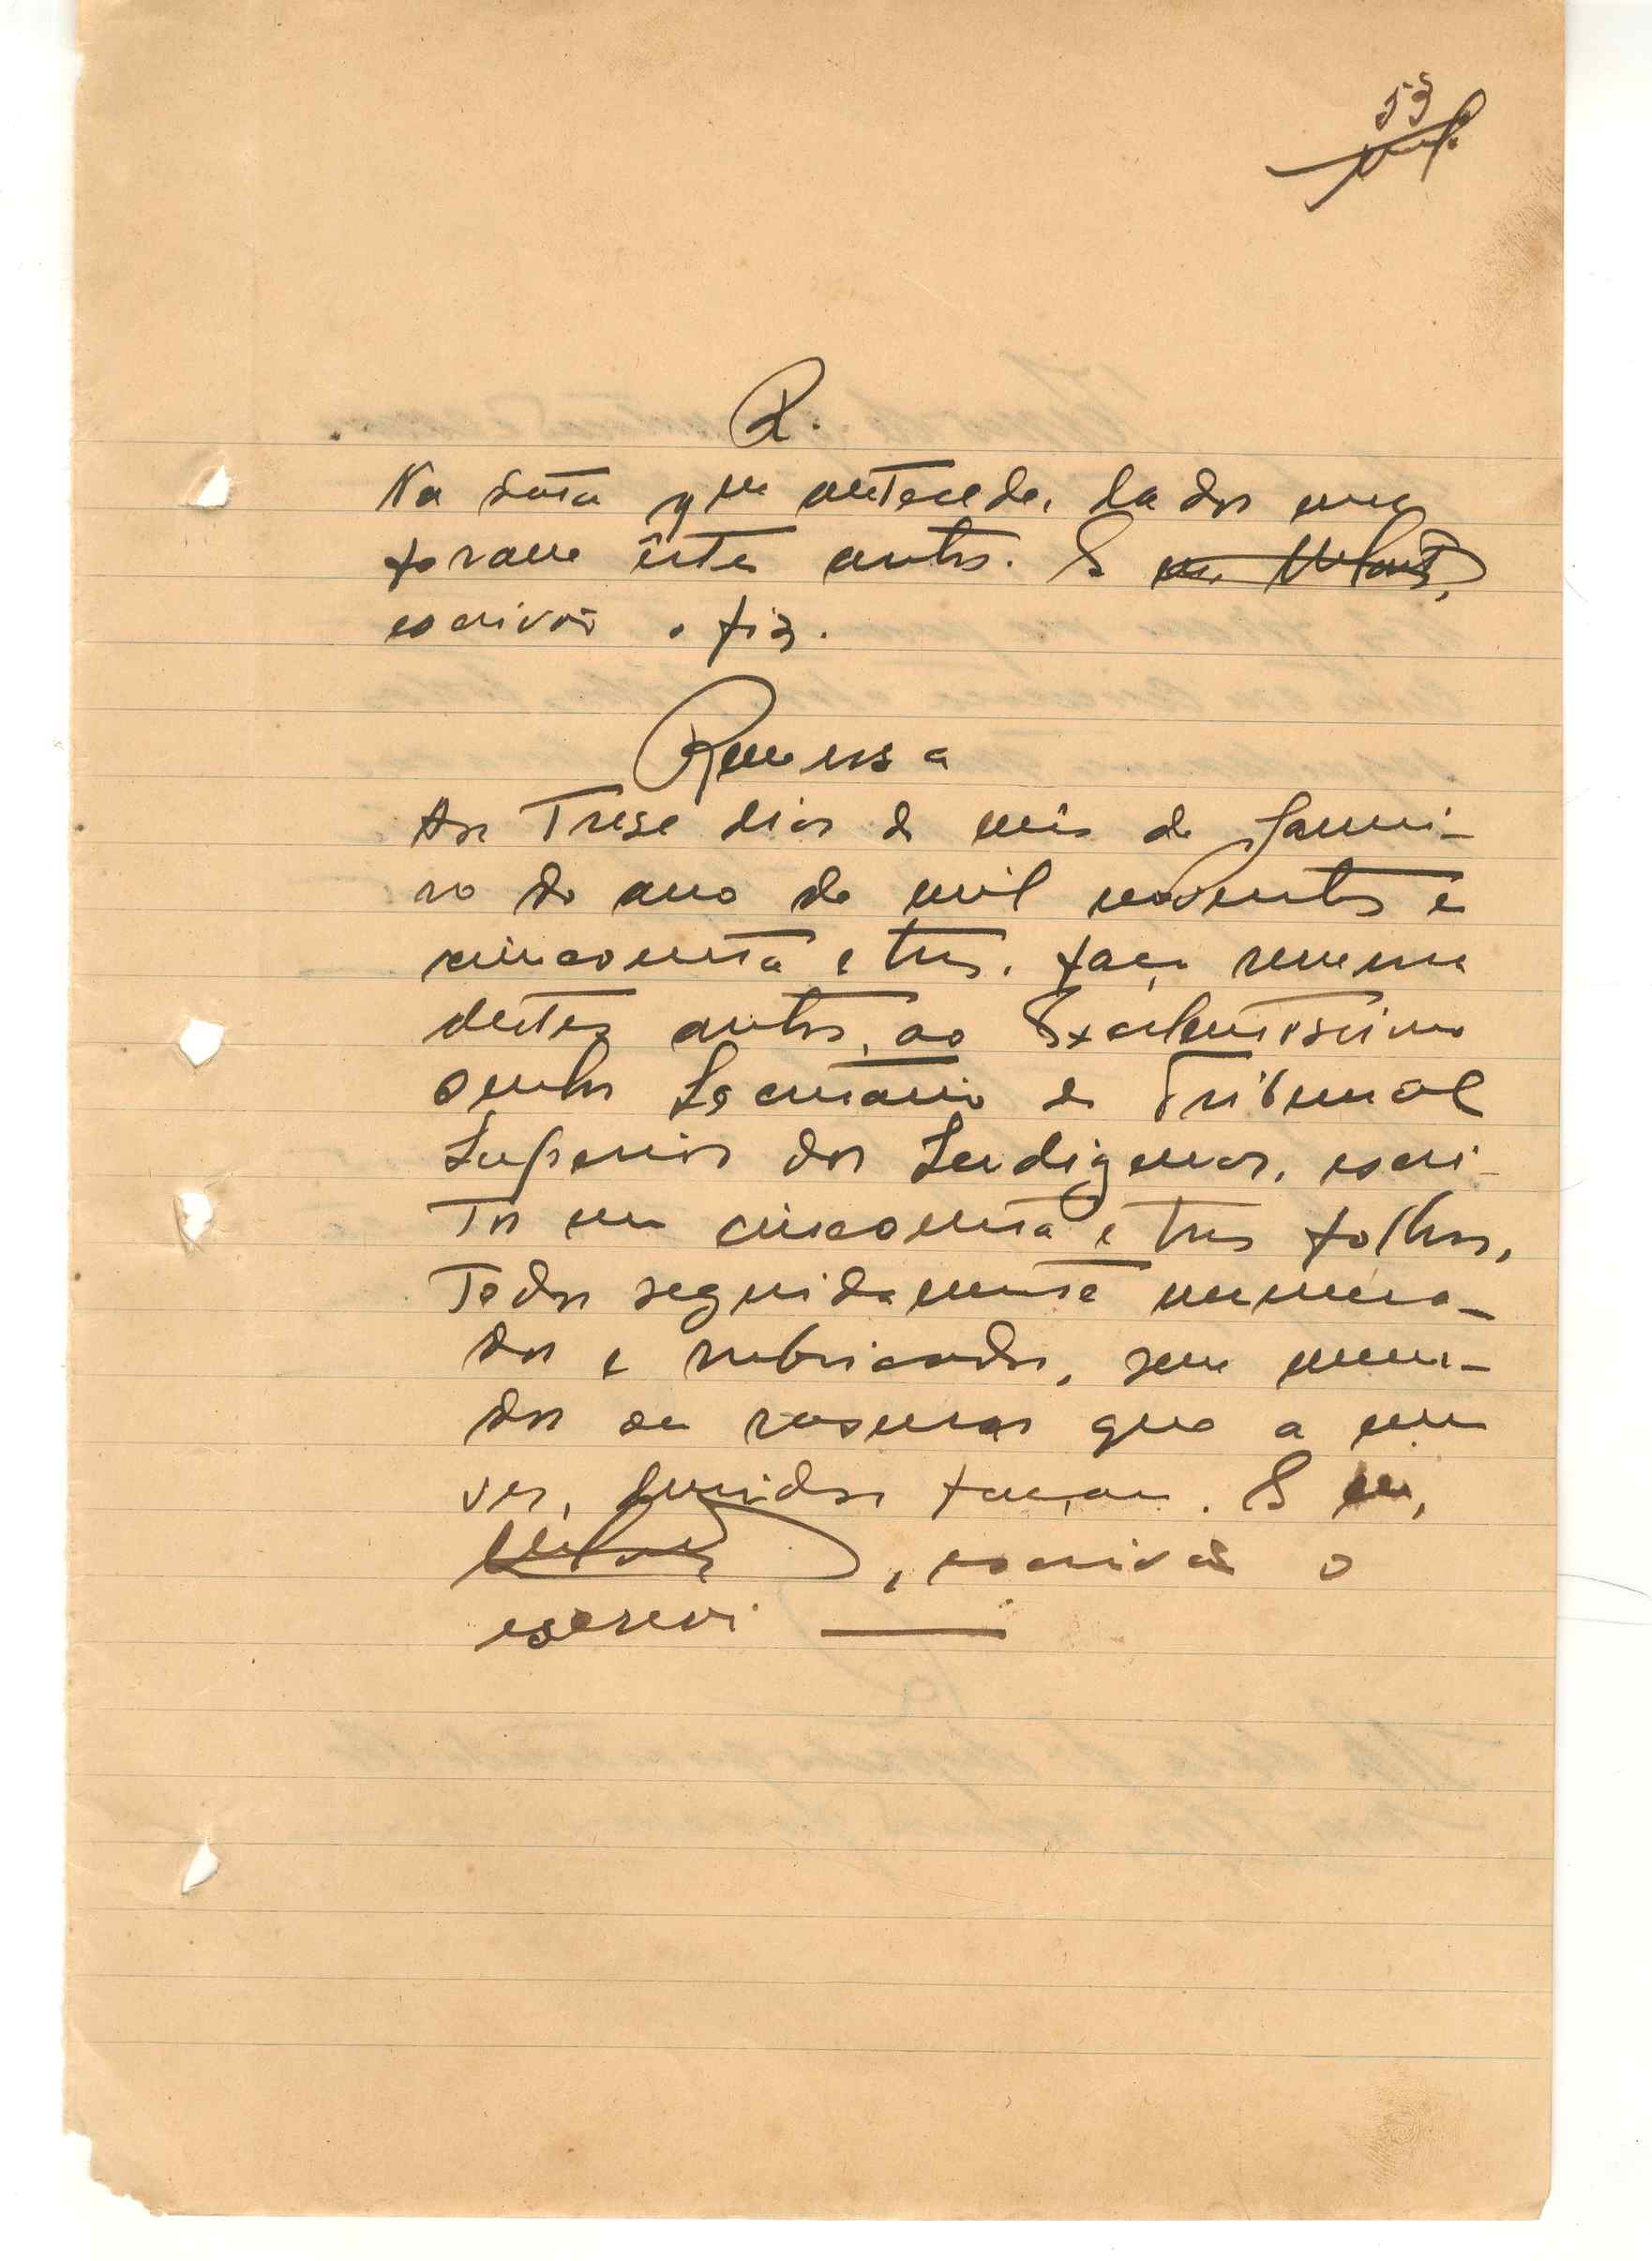 53
R.
Na data que antecede, dados me
foram êstes autos. E eu,
escrivão o fiz.
Remessa
Aos Trese dias do mês de Janei-
ro do ano de mil noventos e
cincoenta e tres, faço remessa
destes autos, ao Excelentissimo
Senhor Secretário do Tribunal
Superior dos Indigenas, escri-
tos em cincoenta e tres folhas,
Todas seguidamente numera-
das e rubricadas, sem emen-
das ou rasuras que a um
ver, duvidas façam. E eu,
, escrivão o
escrevi